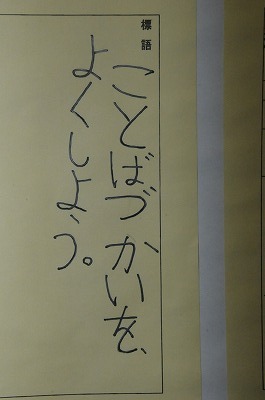 標語
ことばづかいを、
よくしよう。